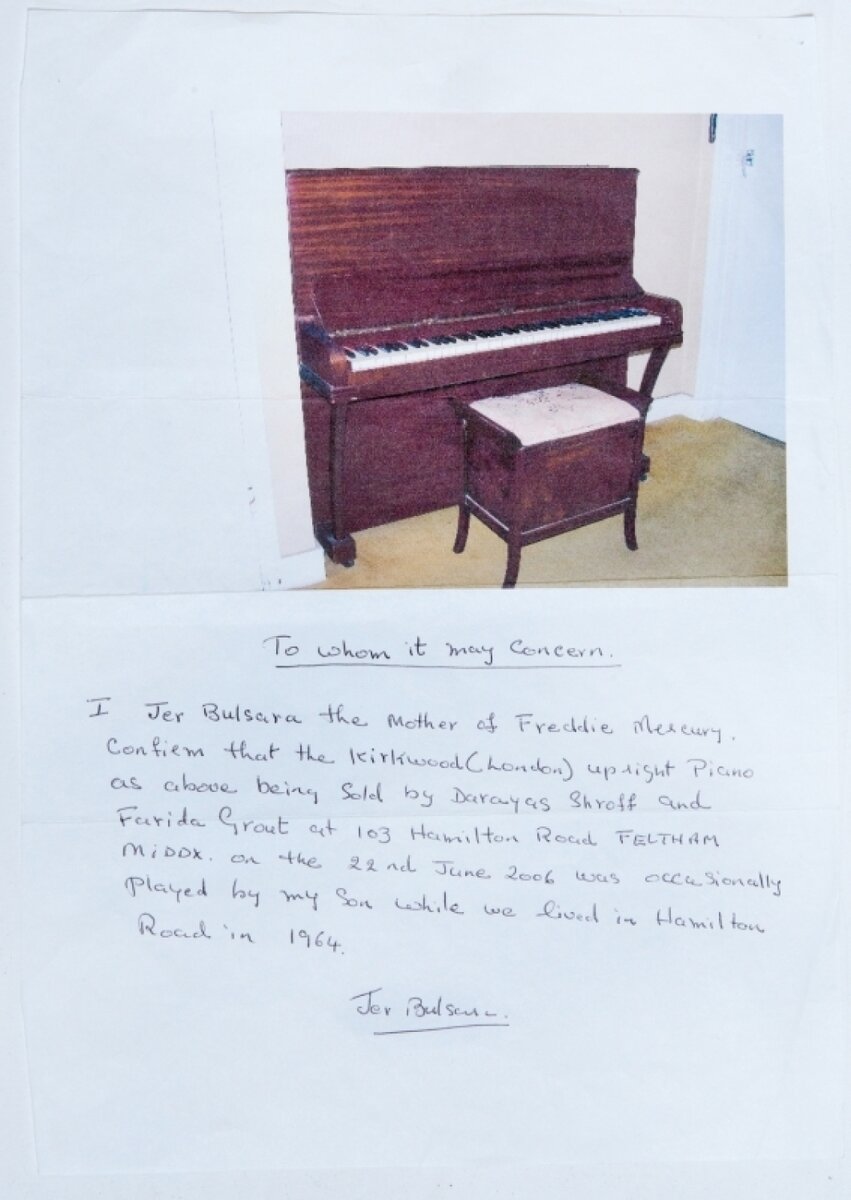 To whom it may Concern.
I Jer Bulsara the Mother of Freddie Mercury.
Confirm that the Kirkwood (London) upright Piano
as above being Sold by Darayas Shroff and
Farida Grout at 103 Hamilton Road FELTHAM
MiDDX. on the 22nd June 2006 was occasionally
Played by my Son while we lived in Hamilton
Road in 1964.
Jer Bulsara.